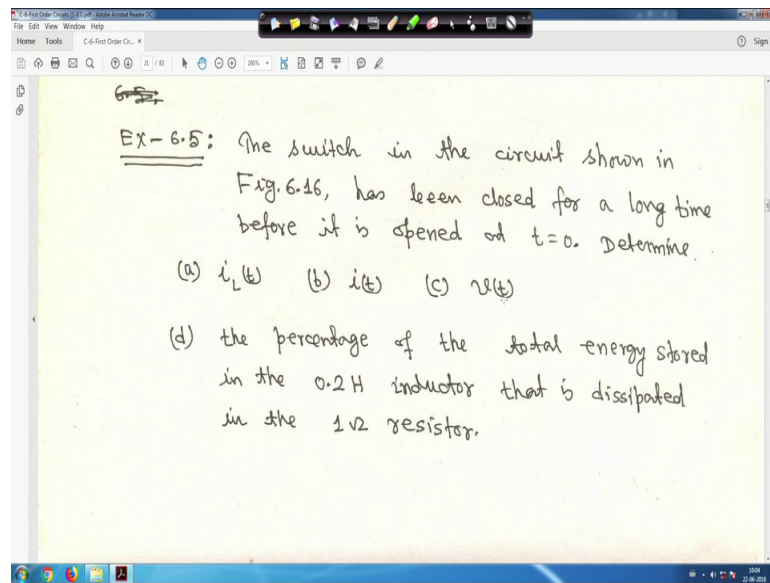 C-6-First Order Circuits [1-83].pdf - Adobe Acrobat Reader DC
File Edit View Window Help
Home Tools C-6-First Order Cir... × Sign
21 / 83 200%
Ex-6.5: The switch in the circuit shown in
Fig. 6.16, has been closed for a long time
before it is opened at t=0. Determine.
(a) i_L(t) (b) i(t) (c) v(t)
(d) the percentage of the total energy stored
in the 0.2H inductor that is dissipated
in the 1Ω resistor.
10:04
22-06-2018